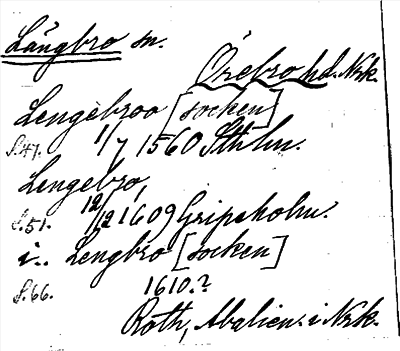 Långbro sn.
Örebro hd. Nrk.
Lengebroo [socken]
S.47. 1/7 1560 Sthlm.
Lengebro,
S.51. 12/12 1609 Gripsholm.
i.. Lengbro [socken]
S.66. 1610.?
Roth, Abalien. i Nrk.